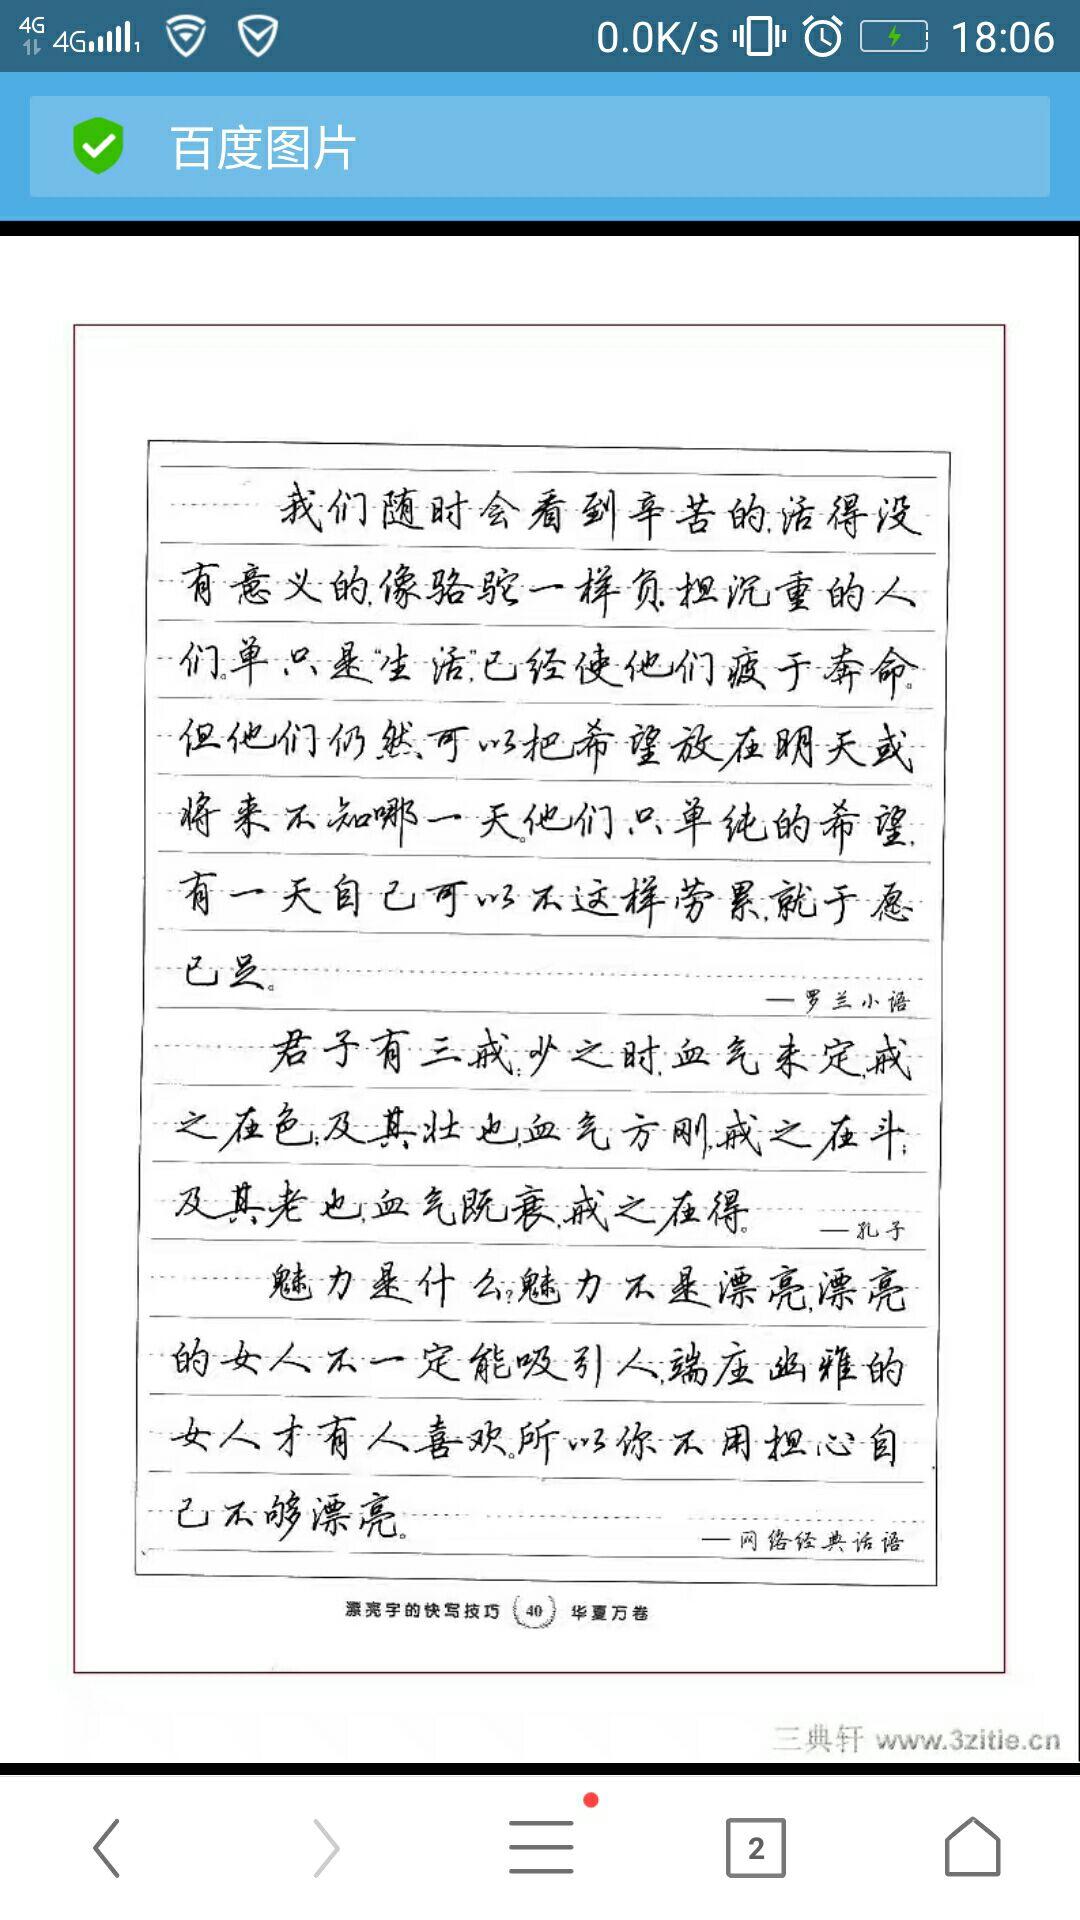 4G 4G 1 0.0K/s 18:06
百度图片
我们随时会看到辛苦的,活得没
有意义的,像骆驼一样负担沉重的人
们。单只是“生活”,已经使他们疲于奔命。
但他们仍然可以把希望放在明天或
将来不知哪一天。他们只单纯的希望,
有一天自己可以不这样劳累,就于愿
已足。
—罗兰小语
君子有三戒:少之时,血气未定,戒
之在色;及其壮也,血气方刚,戒之在斗;
及其老也,血气既衰,戒之在得。
—孔子
魅力是什么?魅力不是漂亮,漂亮
的女人不一定能吸引人,端庄幽雅的
女人才有人喜欢。所以你不用担心自
己不够漂亮。
—网络经典话语
漂亮字的快写技巧 40 华夏万卷
三典轩 www.3zitie.cn
2